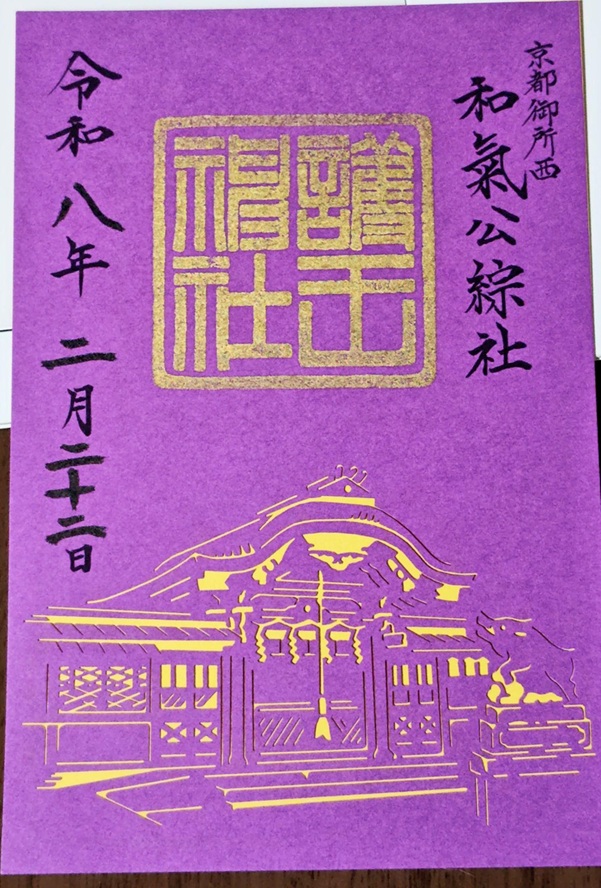 京都御所西
和氣公綜社
護王
神社
令和八年 二月二十二日